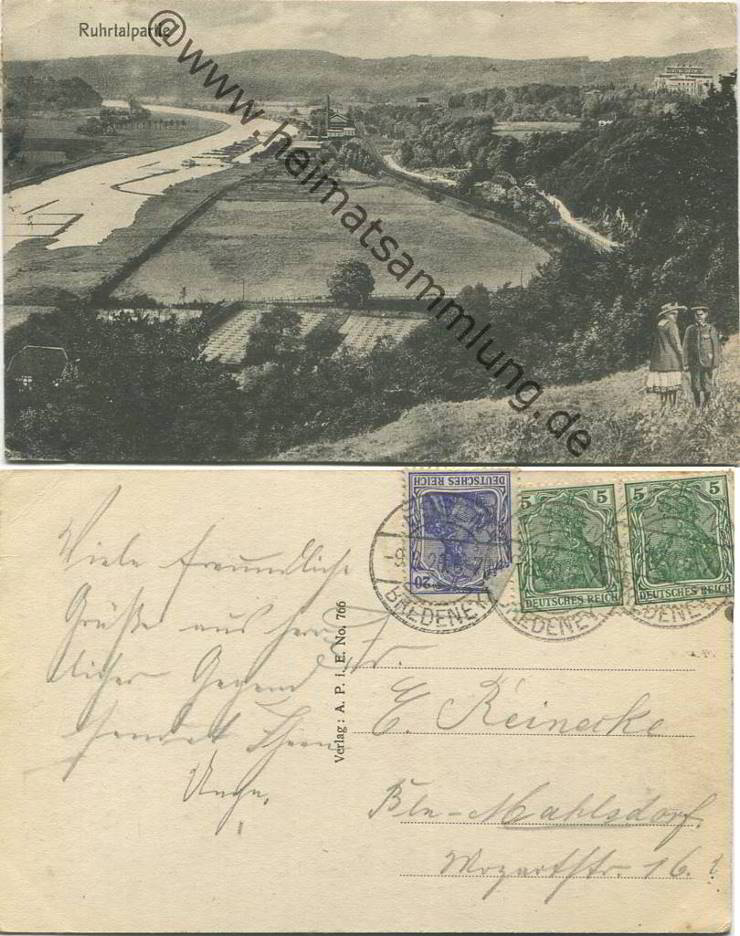 Ruhrtalpartie
@www.heimatsammlung.de
DEUTSCHES REICH
20
5 5
DEUTSCHES REICH
5 5
DEUTSCHES REICH
BREDENEY
Viele freundliche
Grüße aus herr-
licher Gegend
sendet Ihnen
Verlag: A. P. i. E. No. 766
Fr.
E. Reinecke
Bln-Mahlsdorf.
Mozartstr. 16.